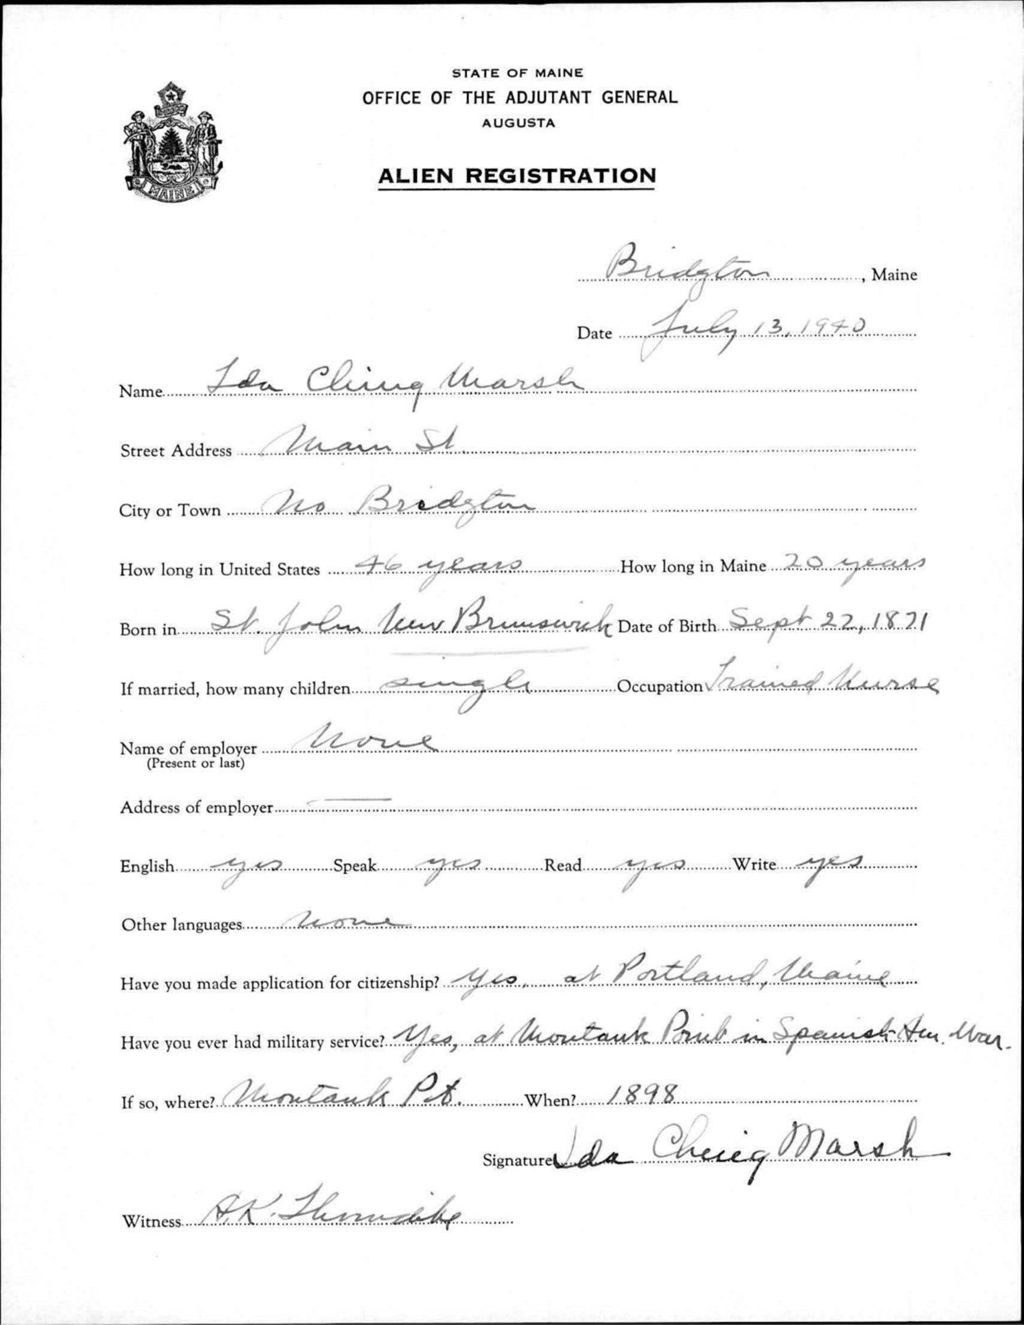 STATE OF MAINE
OFFICE OF THE ADJUTANT GENERAL
AUGUSTA
ALIEN REGISTRATION
MAINE
Bridgton, Maine
Date July 13, 1940
Name Ida Marsh
Street Address Main St.
City or Town No Bridgton
How long in United States 46 years How long in Maine 20 years
Born in St. John New Brunswick Date of Birth Sept 22, 1871
If married, how many children single Occupation Trained Nurse
Name of employer None
(Present or last)
Address of employer —
English yes Speak yes Read yes Write yes
Other languages None
Have you made application for citizenship? Yes, at Portland, Maine
Have you ever had military service? Yes, at Montauk Point in Spanish Am. War.
If so, where? Montauk Pt. When? 1898
Signature Ida Marsh
Witness A.K. Thorndike